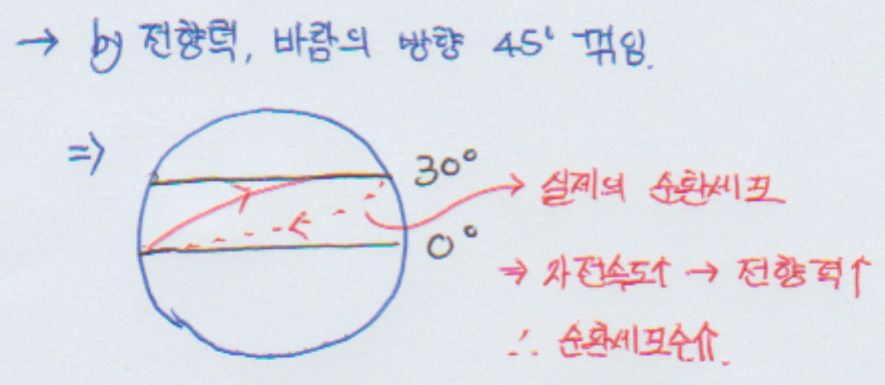 → by 전향력, 바람의 방향 45° 꺾임.
⇒
30°
→ 실제의 순환세포
0°
⇒ 자전속도↑ → 전향력↑
∴ 순환세포수⇈.